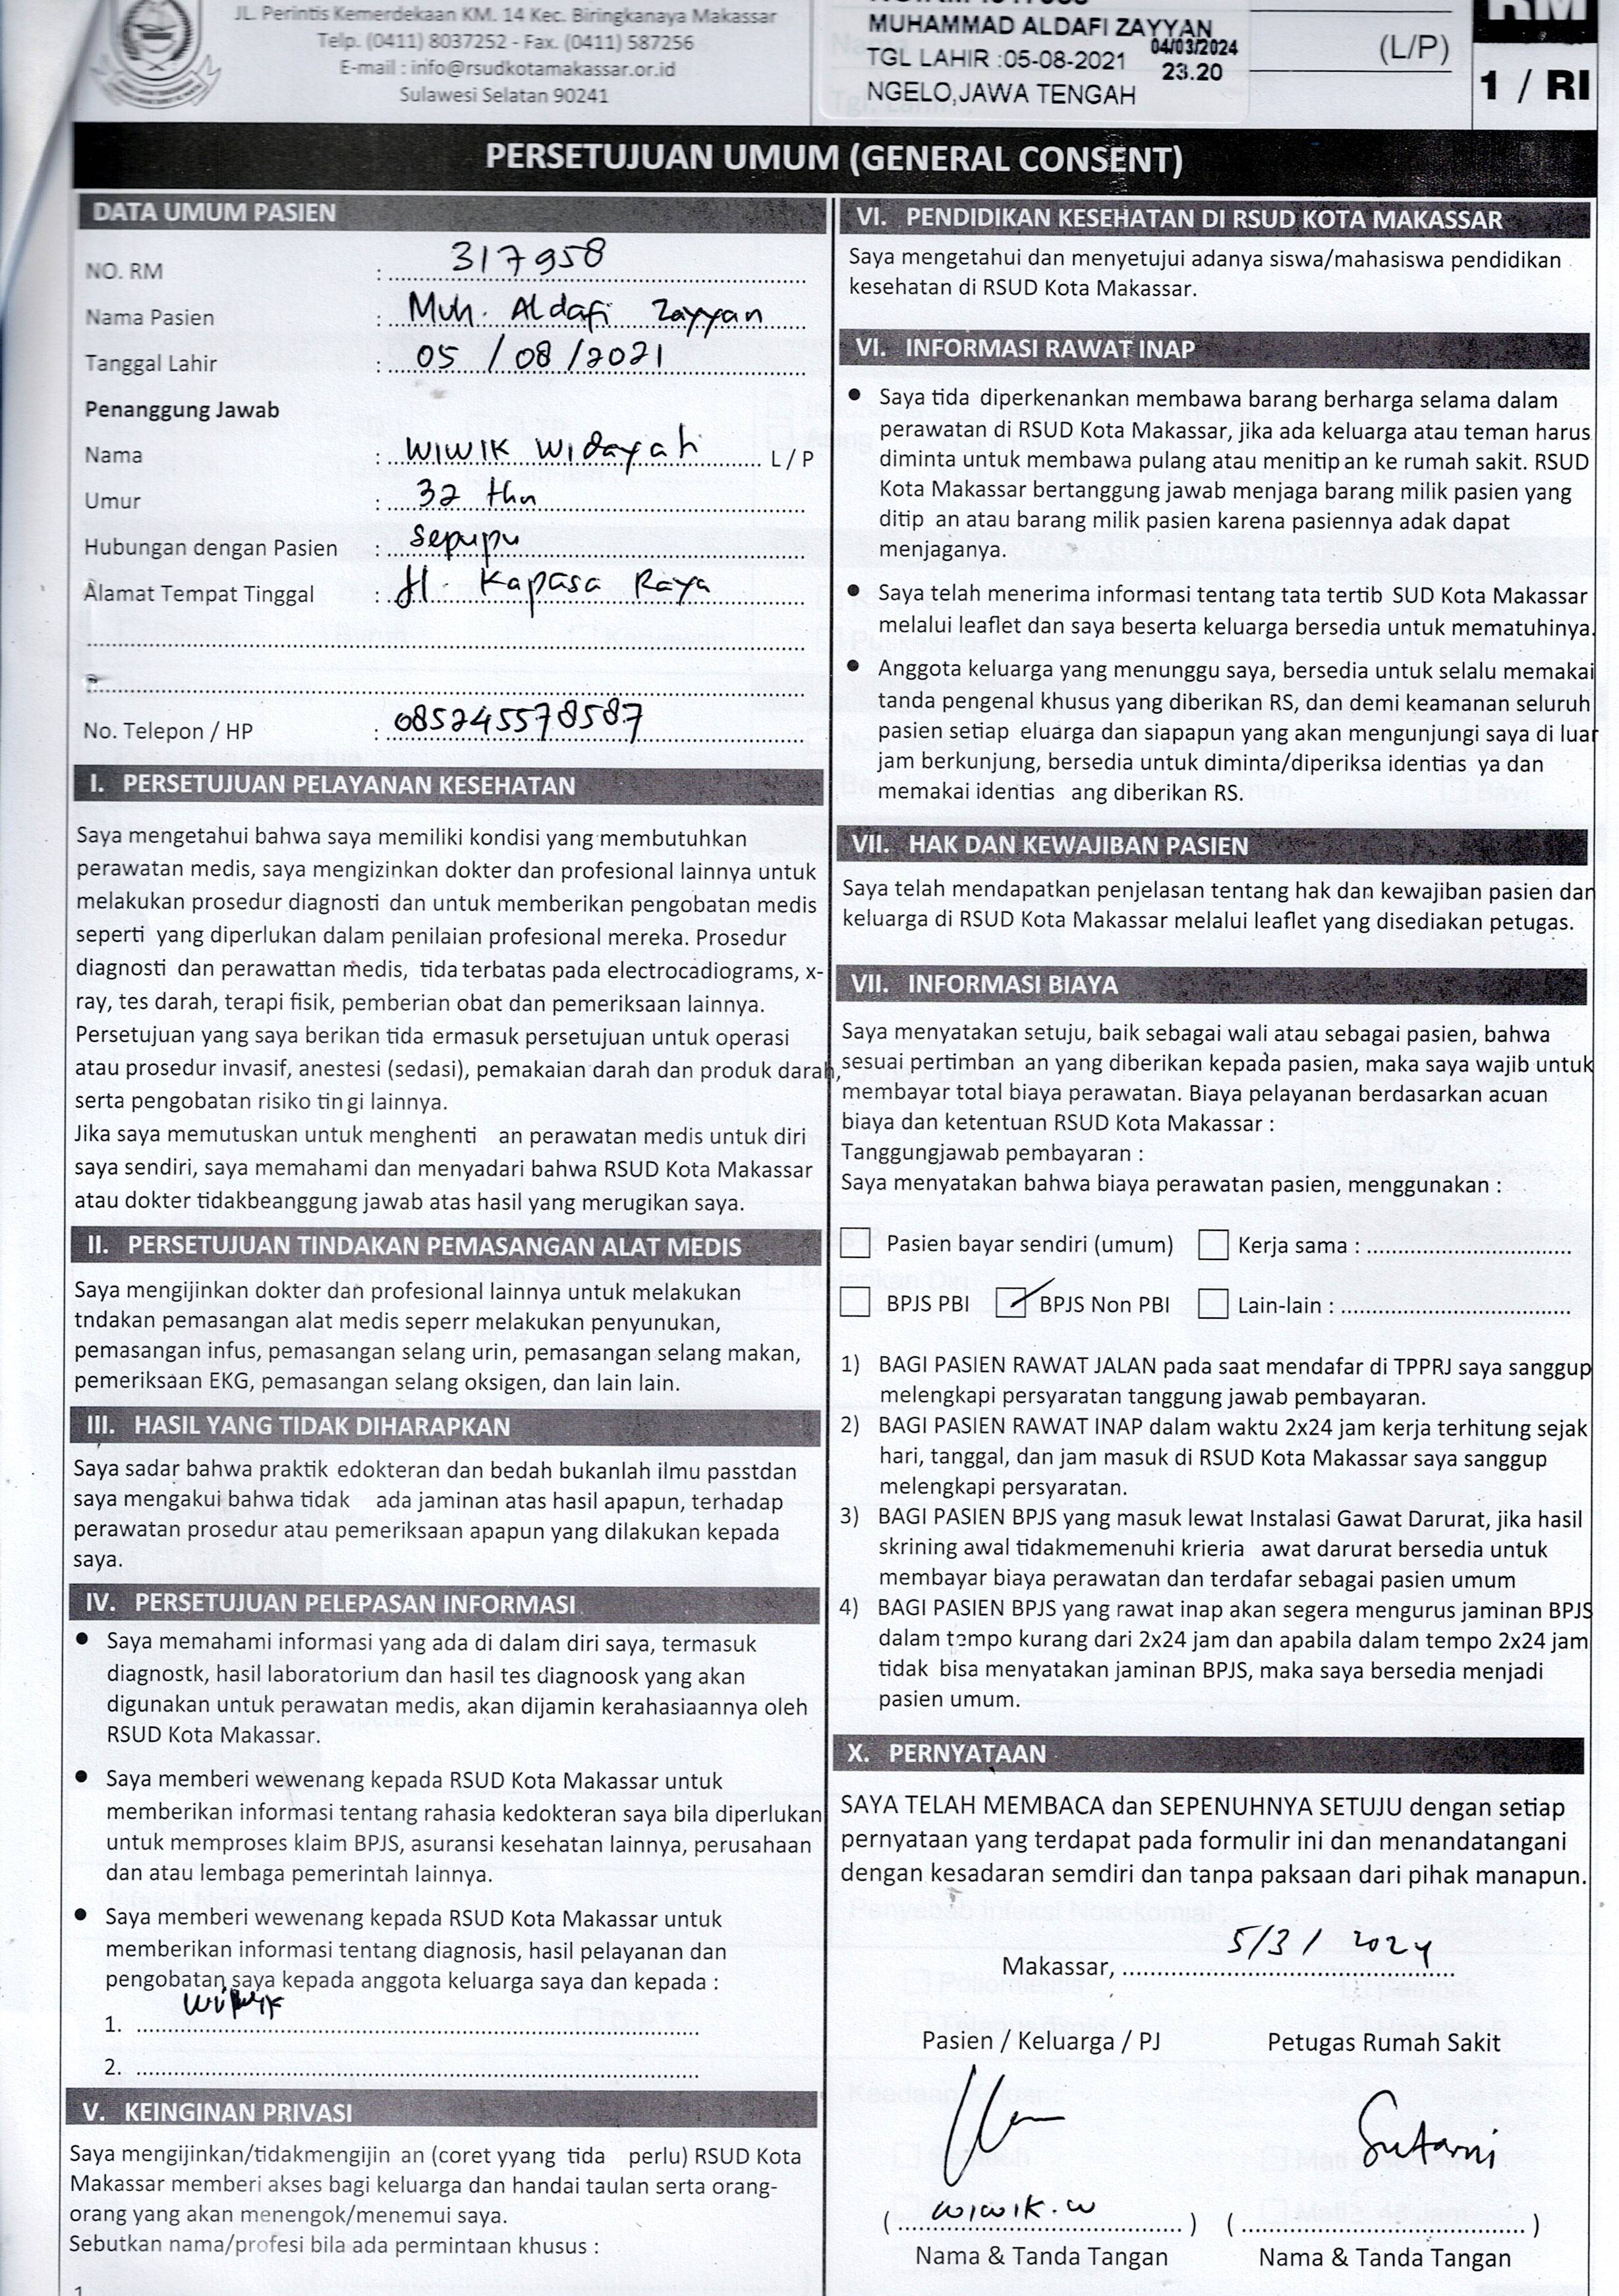 JL. Perintis Kemerdekaan KM. 14 Kec. Biringkanaya Makassar
Telp. (0411) 8037252 - Fax. (0411) 587256
E-mail : info@rsudkotamakassar.or.id
Sulawesi Selatan 90241
MUHAMMAD ALDAFI ZAYYAN
TGL LAHIR :05-08-2021 04/03/2024
23.20
NGELO,JAWA TENGAH
(L/P)
RM
1 / RI
PERSETUJUAN UMUM (GENERAL CONSENT)
DATA UMUM PASIEN
NO. RM : 317958
Nama Pasien : Muh. Aldafi Zayyan
Tanggal Lahir : 05 / 08 /2021
Penanggung Jawab
Nama : WIWIK Widayah L / P
Umur : 32 thn
Hubungan dengan Pasien : Sepupu
Alamat Tempat Tinggal : Jl. Kapasa Raya
No. Telepon / HP : 085245578587
I. PERSETUJUAN PELAYANAN KESEHATAN
Saya mengetahui bahwa saya memiliki kondisi yang membutuhkan
perawatan medis, saya mengizinkan dokter dan profesional lainnya untuk
melakukan prosedur diagnosti dan untuk memberikan pengobatan medis
seperti yang diperlukan dalam penilaian profesional mereka. Prosedur
diagnosti dan perawattan medis, tida terbatas pada electrocadiograms, x-
ray, tes darah, terapi fisik, pemberian obat dan pemeriksaan lainnya.
Persetujuan yang saya berikan tida ermasuk persetujuan untuk operasi
atau prosedur invasif, anestesi (sedasi), pemakaian darah dan produk darah,
serta pengobatan risiko tin gi lainnya.
Jika saya memutuskan untuk menghenti an perawatan medis untuk diri
saya sendiri, saya memahami dan menyadari bahwa RSUD Kota Makassar
atau dokter tidakbeanggung jawab atas hasil yang merugikan saya.
II. PERSETUJUAN TINDAKAN PEMASANGAN ALAT MEDIS
Saya mengijinkan dokter dan profesional lainnya untuk melakukan
tndakan pemasangan alat medis seperr melakukan penyunukan,
pemasangan infus, pemasangan selang urin, pemasangan selang makan,
pemeriksaan EKG, pemasangan selang oksigen, dan lain lain.
III. HASIL YANG TIDAK DIHARAPKAN
Saya sadar bahwa praktik edokteran dan bedah bukanlah ilmu passtdan
saya mengakui bahwa tidak ada jaminan atas hasil apapun, terhadap
perawatan prosedur atau pemeriksaan apapun yang dilakukan kepada
saya.
IV. PERSETUJUAN PELEPASAN INFORMASI
• Saya memahami informasi yang ada di dalam diri saya, termasuk
diagnostk, hasil laboratorium dan hasil tes diagnoosk yang akan
digunakan untuk perawatan medis, akan dijamin kerahasiaannya oleh
RSUD Kota Makassar.
• Saya memberi wewenang kepada RSUD Kota Makassar untuk
memberikan informasi tentang rahasia kedokteran saya bila diperlukan
untuk memproses klaim BPJS, asuransi kesehatan lainnya, perusahaan
dan atau lembaga pemerintah lainnya.
• Saya memberi wewenang kepada RSUD Kota Makassar untuk
memberikan informasi tentang diagnosis, hasil pelayanan dan
pengobatan saya kepada anggota keluarga saya dan kepada :
1. wiwik
2.
V. KEINGINAN PRIVASI
Saya mengijinkan/tidakmengijin an (coret yyang tida perlu) RSUD Kota
Makassar memberi akses bagi keluarga dan handai taulan serta orang-
orang yang akan menengok/menemui saya.
Sebutkan nama/profesi bila ada permintaan khusus :
1
VI. PENDIDIKAN KESEHATAN DI RSUD KOTA MAKASSAR
Saya mengetahui dan menyetujui adanya siswa/mahasiswa pendidikan
kesehatan di RSUD Kota Makassar.
VI. INFORMASI RAWAT INAP
• Saya tida diperkenankan membawa barang berharga selama dalam
perawatan di RSUD Kota Makassar, jika ada keluarga atau teman harus
diminta untuk membawa pulang atau menitip an ke rumah sakit. RSUD
Kota Makassar bertanggung jawab menjaga barang milik pasien yang
ditip an atau barang milik pasien karena pasiennya adak dapat
menjaganya.
• Saya telah menerima informasi tentang tata tertib SUD Kota Makassar
melalui leaflet dan saya beserta keluarga bersedia untuk mematuhinya.
• Anggota keluarga yang menunggu saya, bersedia untuk selalu memakai
tanda pengenal khusus yang diberikan RS, dan demi keamanan seluruh
pasien setiap eluarga dan siapapun yang akan mengunjungi saya di luar
jam berkunjung, bersedia untuk diminta/diperiksa identias ya dan
memakai identias ang diberikan RS.
VII. HAK DAN KEWAJIBAN PASIEN
Saya telah mendapatkan penjelasan tentang hak dan kewajiban pasien dan
keluarga di RSUD Kota Makassar melalui leaflet yang disediakan petugas.
VII. INFORMASI BIAYA
Saya menyatakan setuju, baik sebagai wali atau sebagai pasien, bahwa
sesuai pertimban an yang diberikan kepada pasien, maka saya wajib untuk
membayar total biaya perawatan. Biaya pelayanan berdasarkan acuan
biaya dan ketentuan RSUD Kota Makassar :
Tanggungjawab pembayaran :
Saya menyatakan bahwa biaya perawatan pasien, menggunakan :
Pasien bayar sendiri (umum) Kerja sama :
BPJS PBI BPJS Non PBI Lain-lain :
1) BAGI PASIEN RAWAT JALAN pada saat mendafar di TPPRJ saya sanggup
melengkapi persyaratan tanggung jawab pembayaran.
2) BAGI PASIEN RAWAT INAP dalam waktu 2x24 jam kerja terhitung sejak
hari, tanggal, dan jam masuk di RSUD Kota Makassar saya sanggup
melengkapi persyaratan.
3) BAGI PASIEN BPJS yang masuk lewat Instalasi Gawat Darurat, jika hasil
skrining awal tidakmemenuhi krieria awat darurat bersedia untuk
membayar biaya perawatan dan terdafar sebagai pasien umum
4) BAGI PASIEN BPJS yang rawat inap akan segera mengurus jaminan BPJS
dalam tempo kurang dari 2x24 jam dan apabila dalam tempo 2x24 jam
tidak bisa menyatakan jaminan BPJS, maka saya bersedia menjadi
pasien umum.
X. PERNYATAAN
SAYA TELAH MEMBACA dan SEPENUHNYA SETUJU dengan setiap
pernyataan yang terdapat pada formulir ini dan menandatangani
dengan kesadaran semdiri dan tanpa paksaan dari pihak manapun.
Makassar, 5/3/ 2024
Pasien / Keluarga / PJ Petugas Rumah Sakit
Sutarni
( wiwik.w ) ( )
Nama & Tanda Tangan Nama & Tanda Tangan